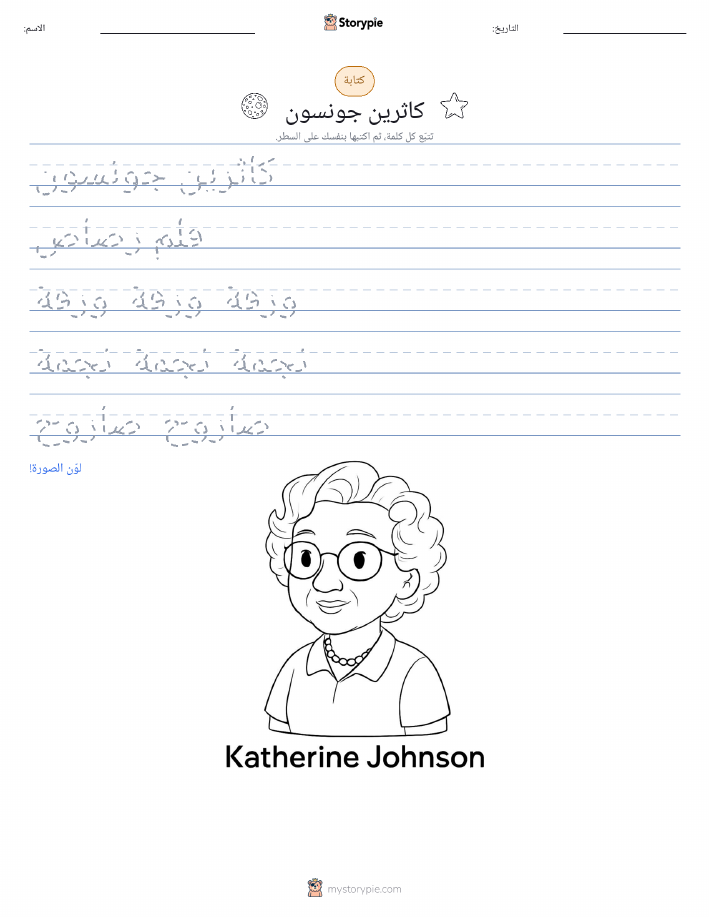 Storypie
الاسم:
التاريخ:
كتابة
كاثرين جونسون
تتبّع كل كلمة، ثم اكتبها بنفسك على السطر.
كاثرين جونسون
قلم رصاص
ورقة ورقة ورقة
نجمة نجمة نجمة
صاروخ صاروخ
لوّن الصورة!
Katherine Johnson
mystorypie.com